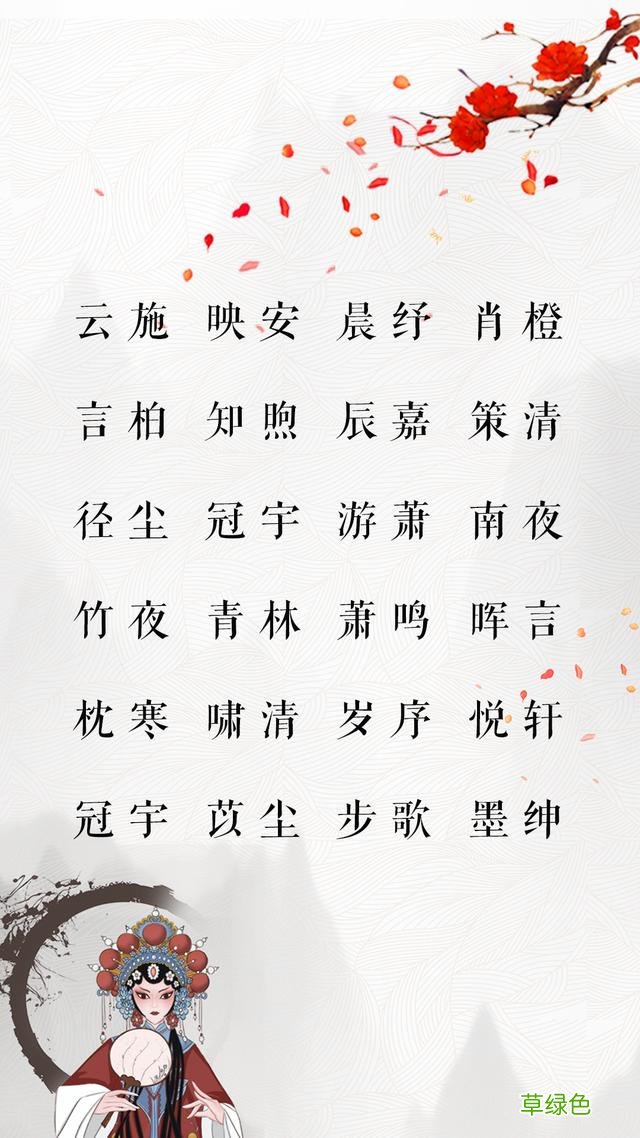 云施 映安 晨纾 肖橙
言柏 知煦 辰嘉 策清
径尘 冠宇 游萧 南夜
竹夜 青林 萧鸣 晖言
枕寒 啸清 岁序 悦轩
冠宇 苡尘 步歌 墨绅
草绿色